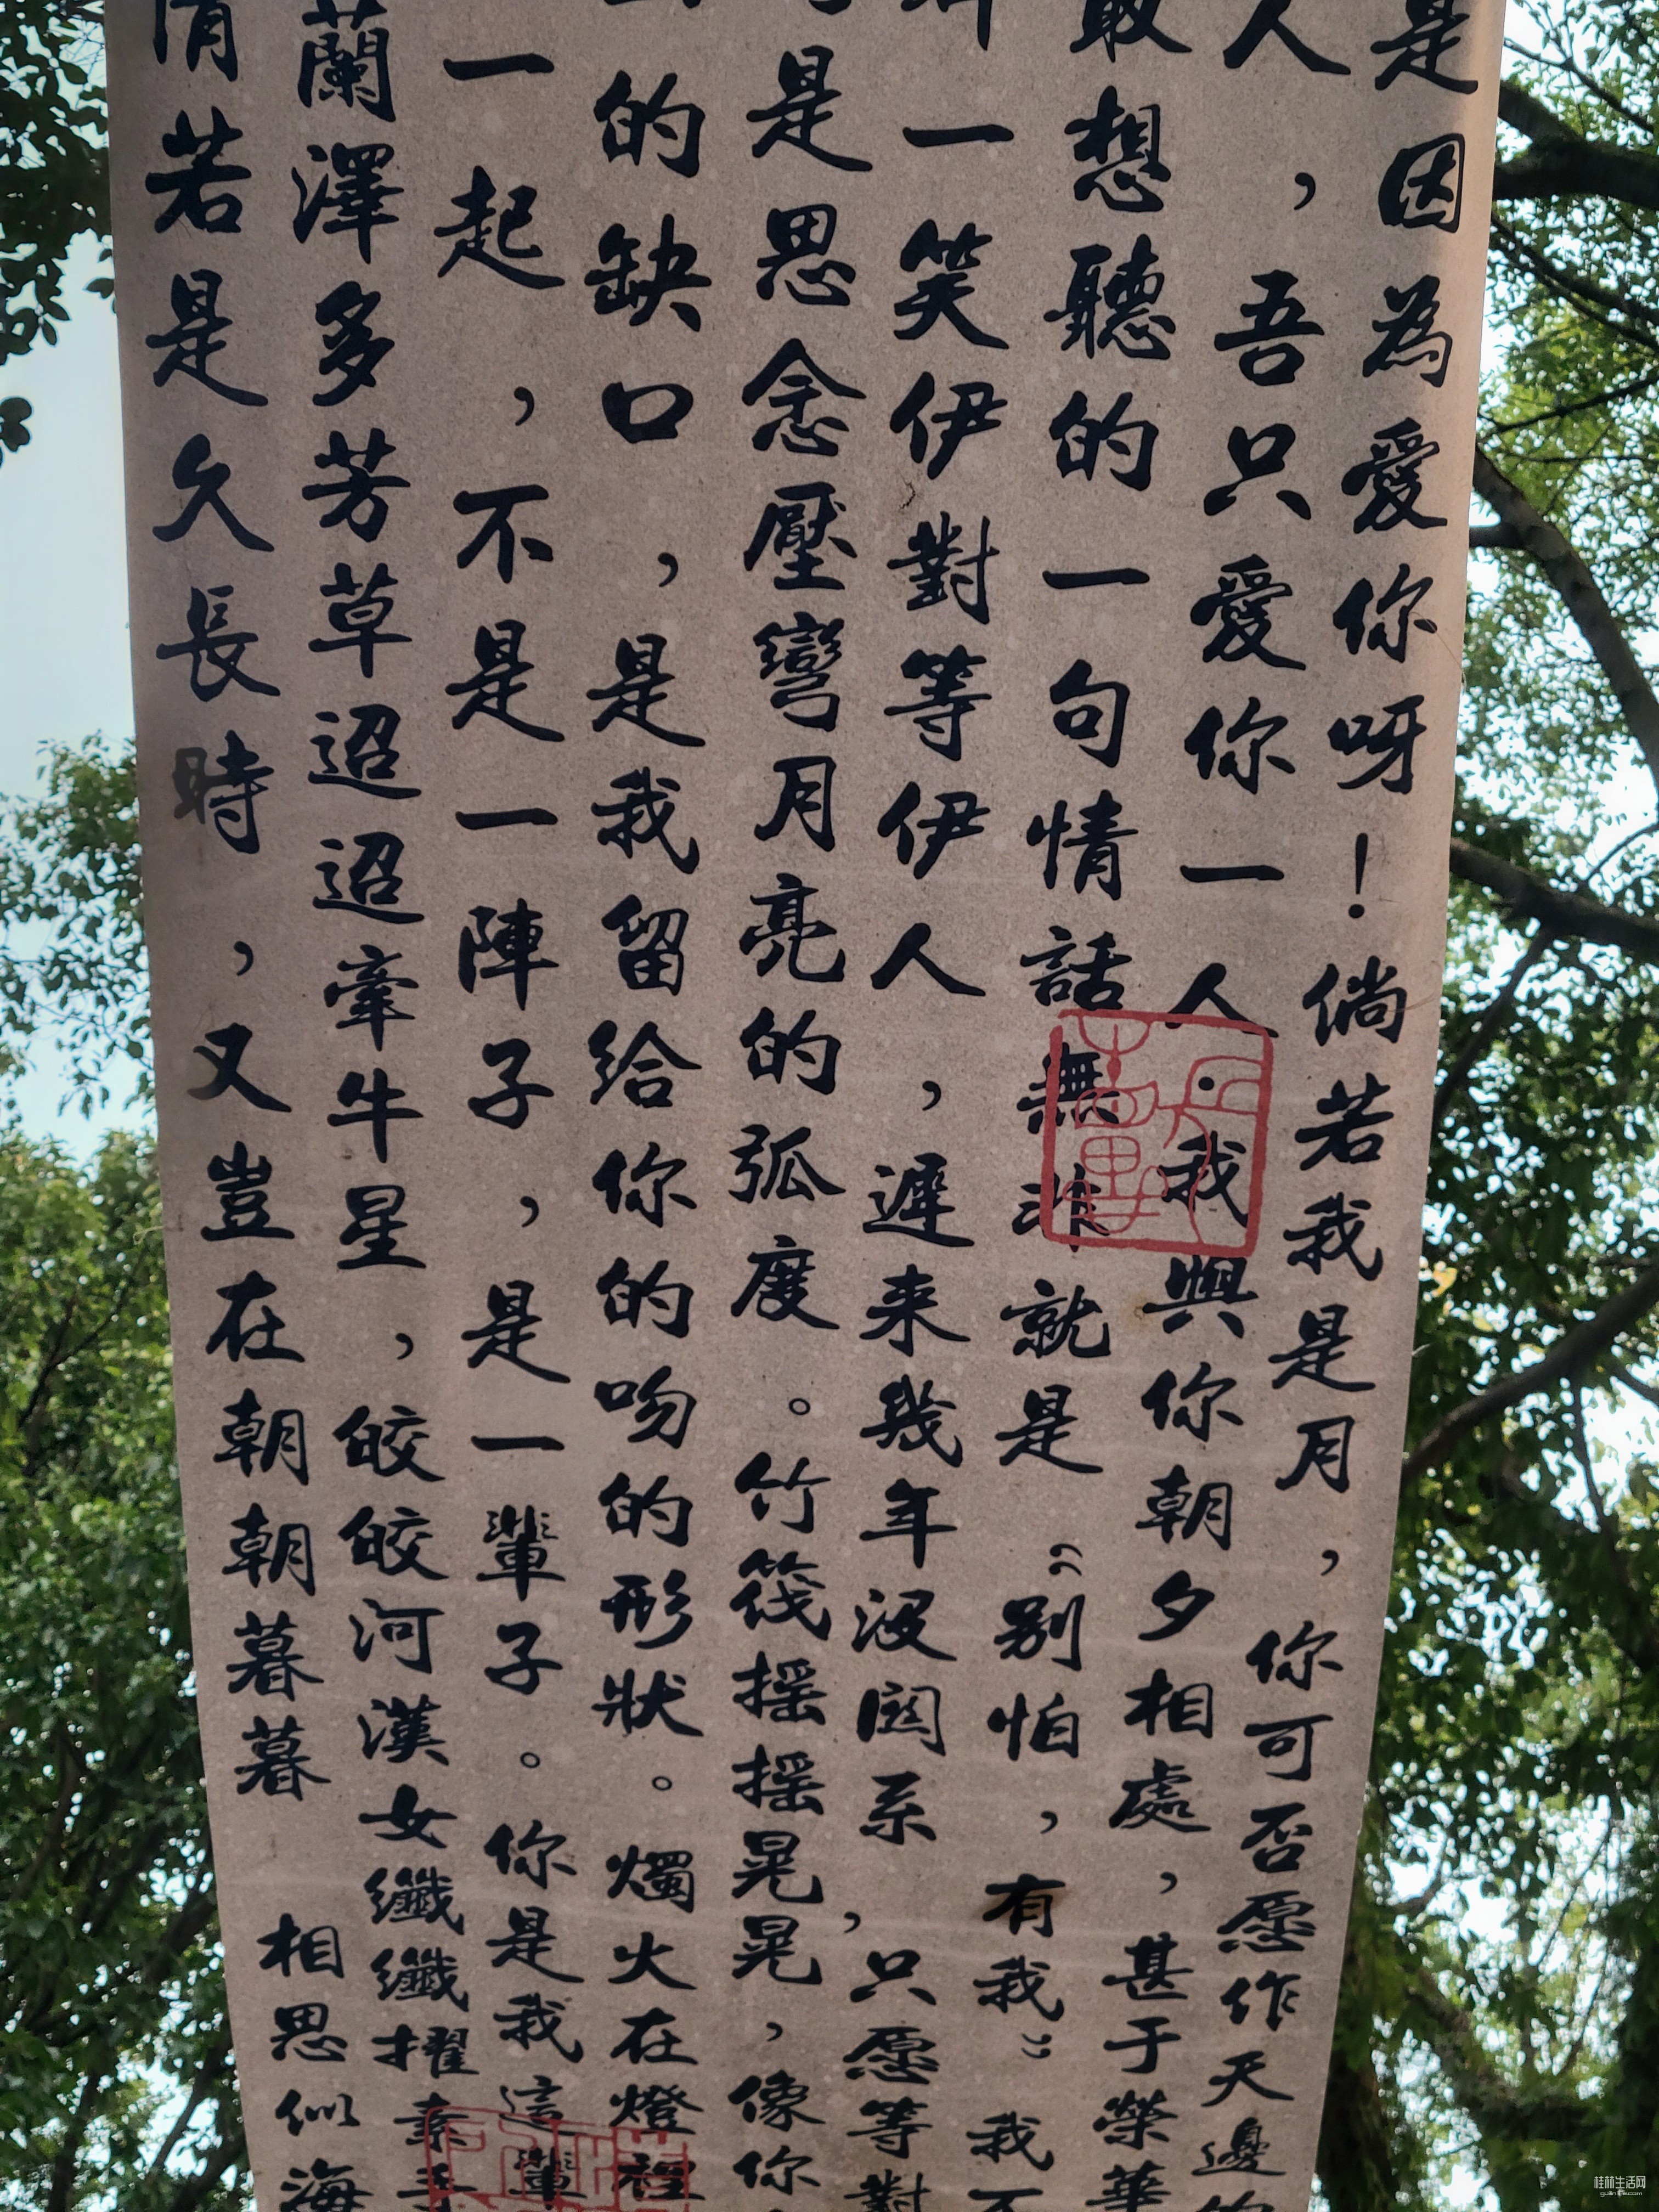 是因為愛你呀!倘若我是月,你可否愿作天邊的
人,吾只愛你一人.我與你朝夕相處,甚于榮華
敢想聽的一句情話無非就是“别怕,有我”我不
一笑伊對等伊人,遲来幾年没関系,只愿等對
是思念壓彎月亮的弧度。竹筏摇摇晃晃,像你
的缺口,是我留給你的吻的形狀。燭火在燈裡
一起,不是一陣子,是一輩子。你是我這輩
蘭澤多芳草迢迢牽牛星,皎皎河漢女纖纖擢素手
情若是久長時,又豈在朝朝暮暮 相思似海
桂林生活网
guilinlife.com